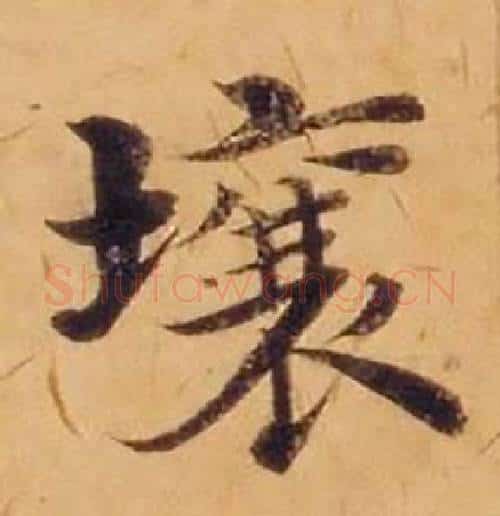 壤
Shufawang.CN